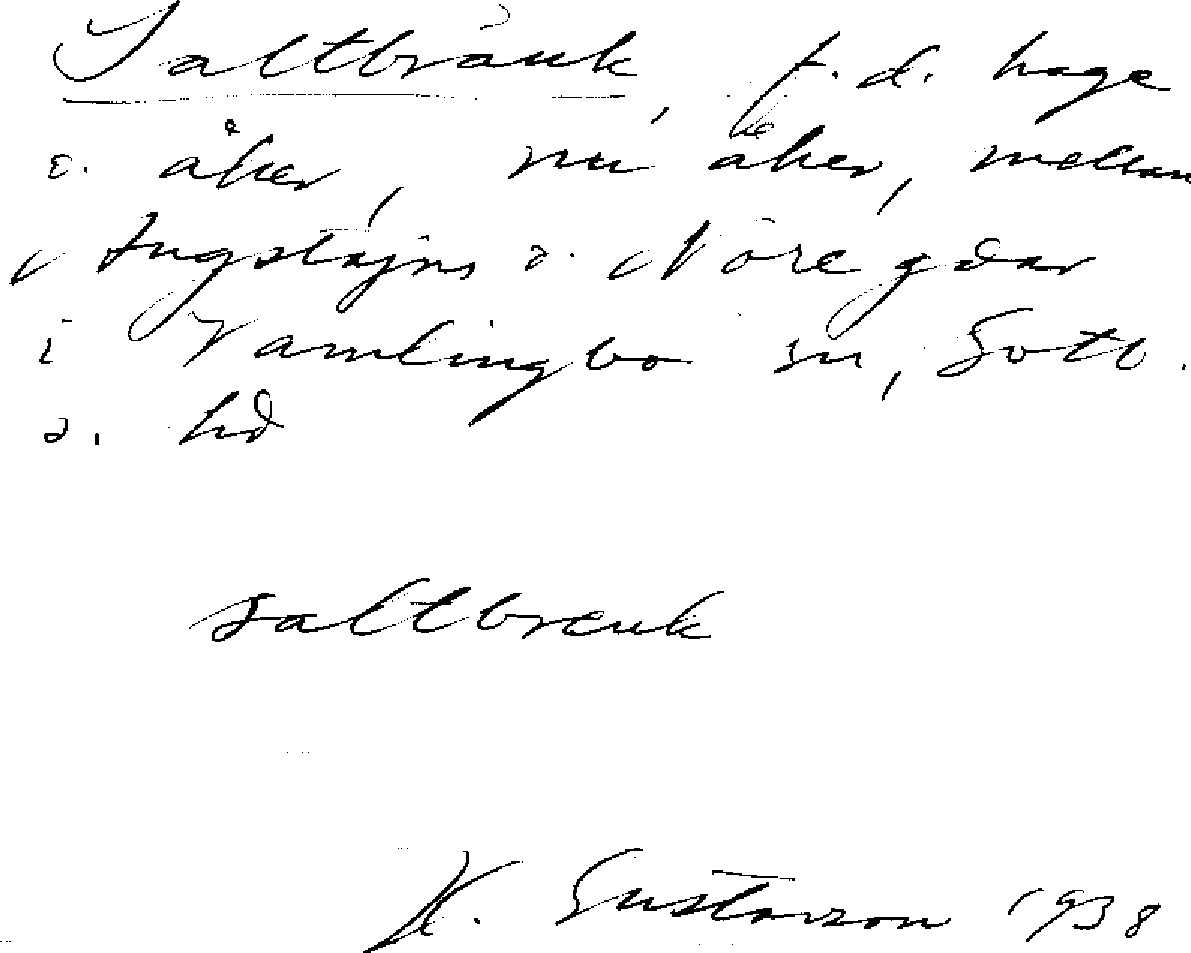 Saltbränk, f.d. hage
o. åker, nu åker, mellan
Augstäjns o. Nore gdar
i Vamlingbo sn, Gotl.
s. hd
saltbrenk
H. Gustavson 1938